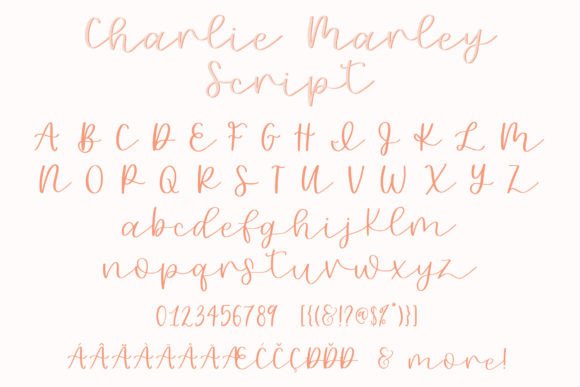 Charlie Marley
Script
A B C D E F G H I J K L M
N O P Q R S T U V W X Y Z
abcdefghijklm
nopqrstuvwxyz
0123456789 [{(&!?@$%*)}]
& more!